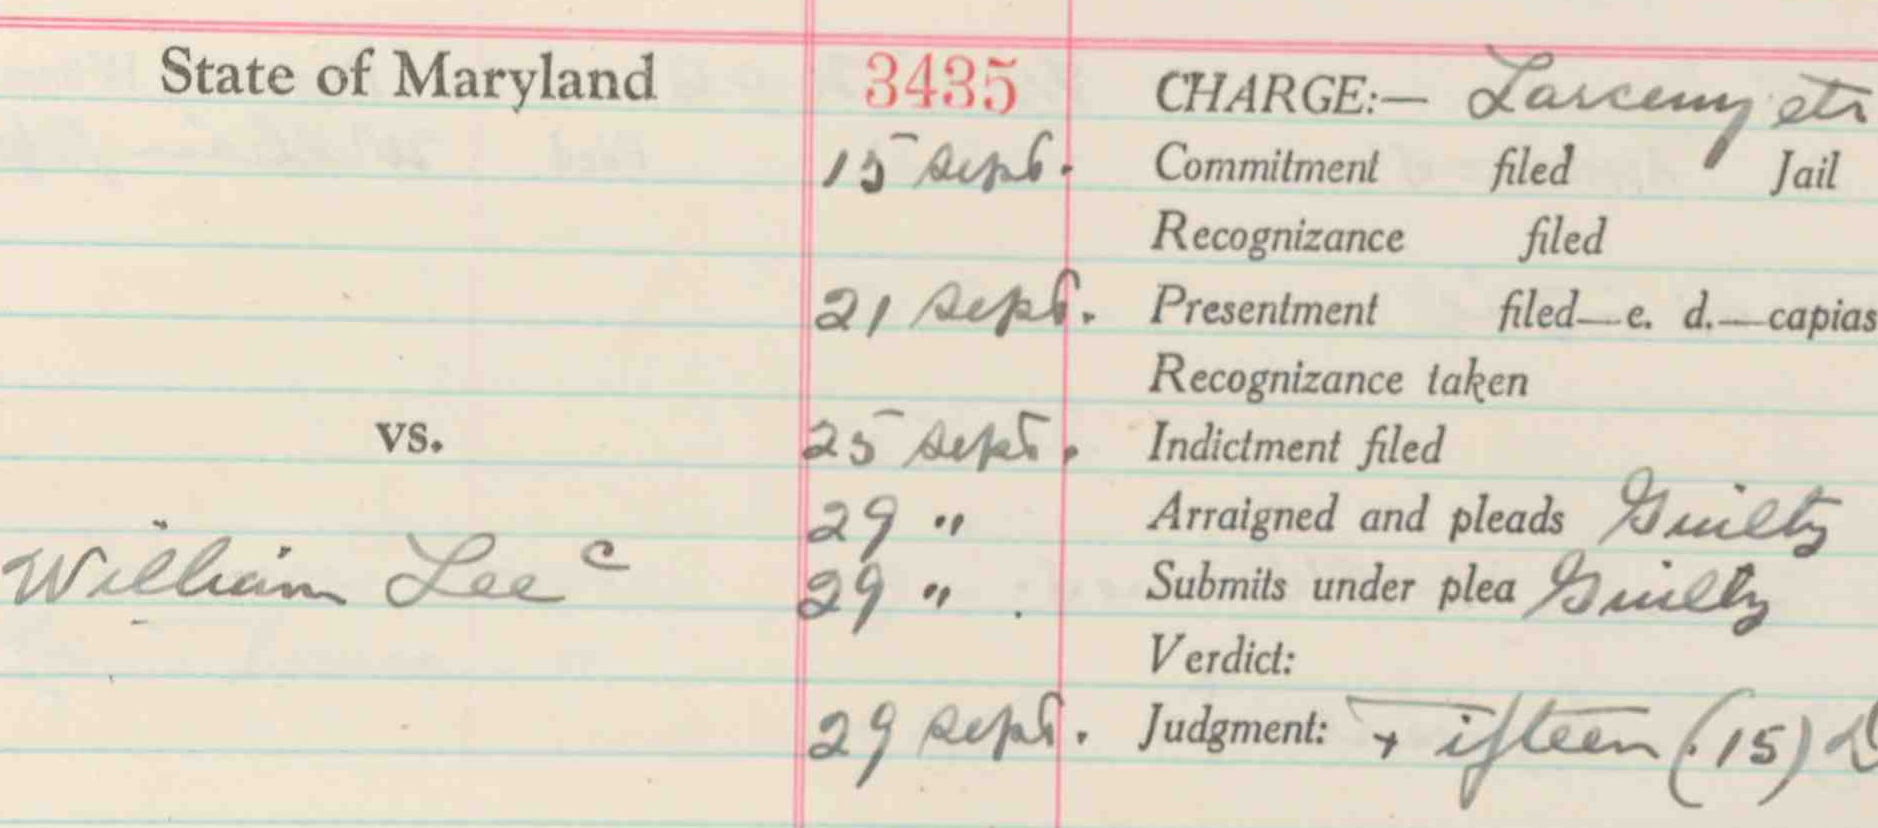 State of Maryland 3435 CHARGE:— Larceny etc
15 Sept. Commitment filed Jail
Recognizance filed
21 Sept. Presentment filed—e. d.—capias
Recognizance taken
vs. 25 Sept. Indictment filed
29 " Arraigned and pleads Guilty
William Lee c 29 " Submits under plea Guilty
Verdict:
29 Sept. Judgment: Fifteen (15) D